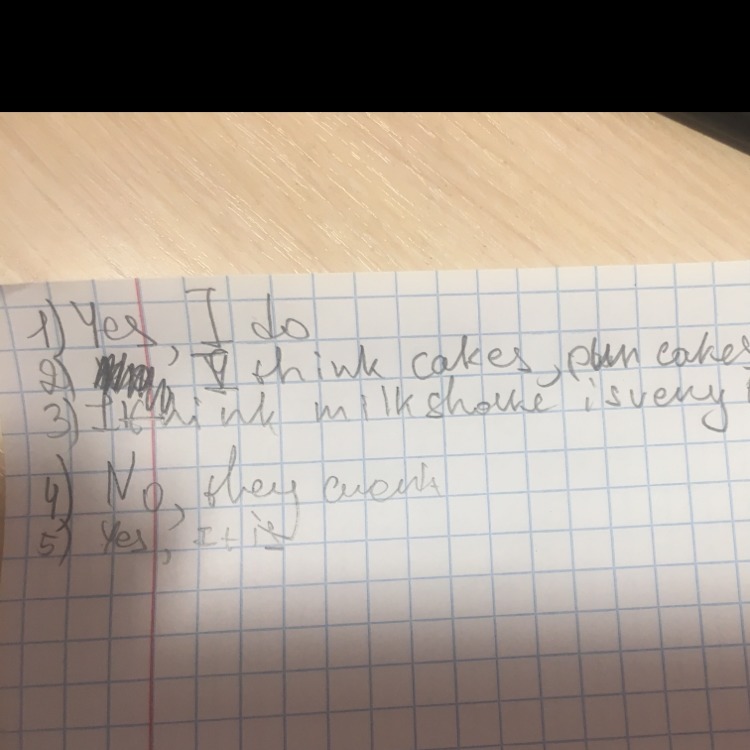 1) Yes, I do
2) I think cakes, pan cakes
3) I think milkshake is very
4) No, they aren't
5) Yes, it is